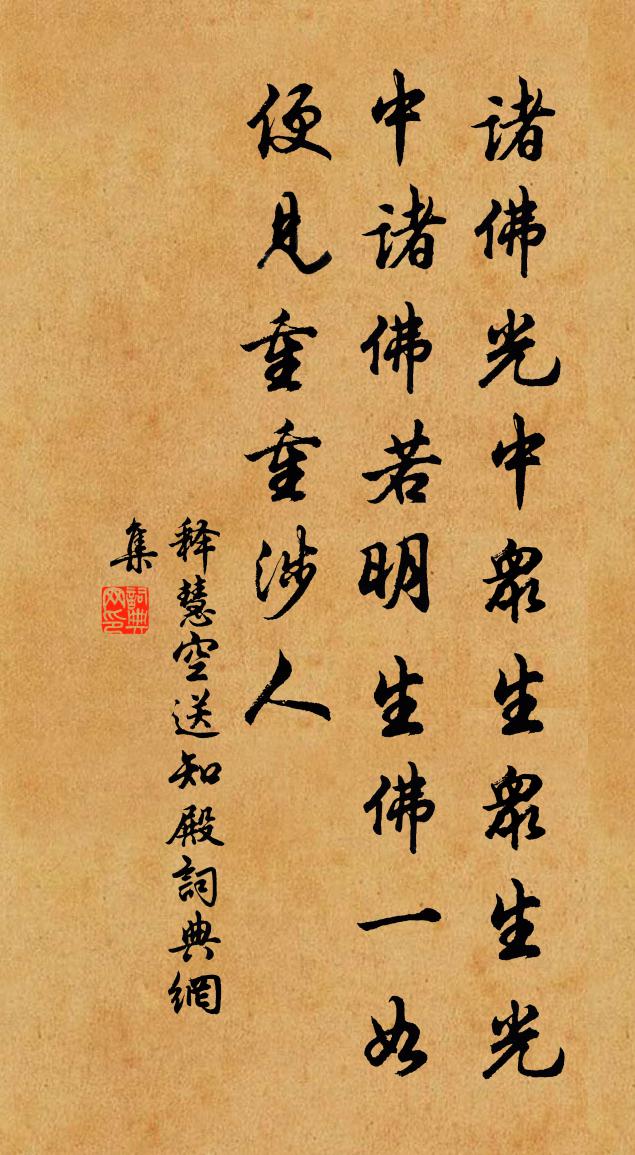 諸佛光中眾生眾生光
中諸佛若明生佛一如
便見重重涉人
释慧空送知殿詞典網
集
詞典
网印